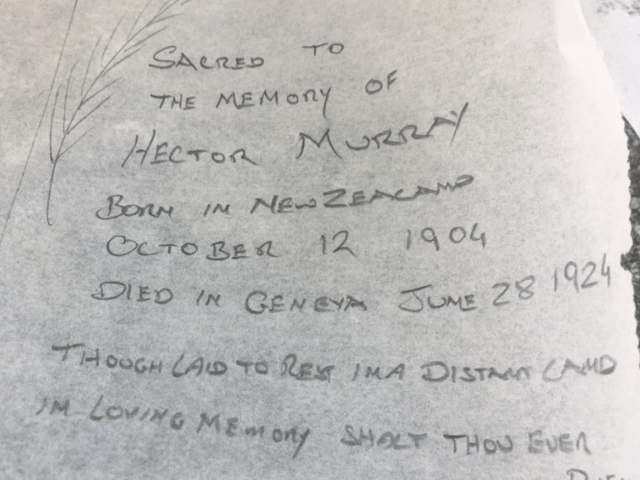 SACRED TO
THE MEMORY OF
HECTOR MURRAY
BORN IN NEW ZEALAND
OCTOBER 12 1904
DIED IN GENEVA JUNE 28 1924
THOUGH LAID TO REST IN A DISTANT LAND
IN LOVING MEMORY SHALT THOU EVER